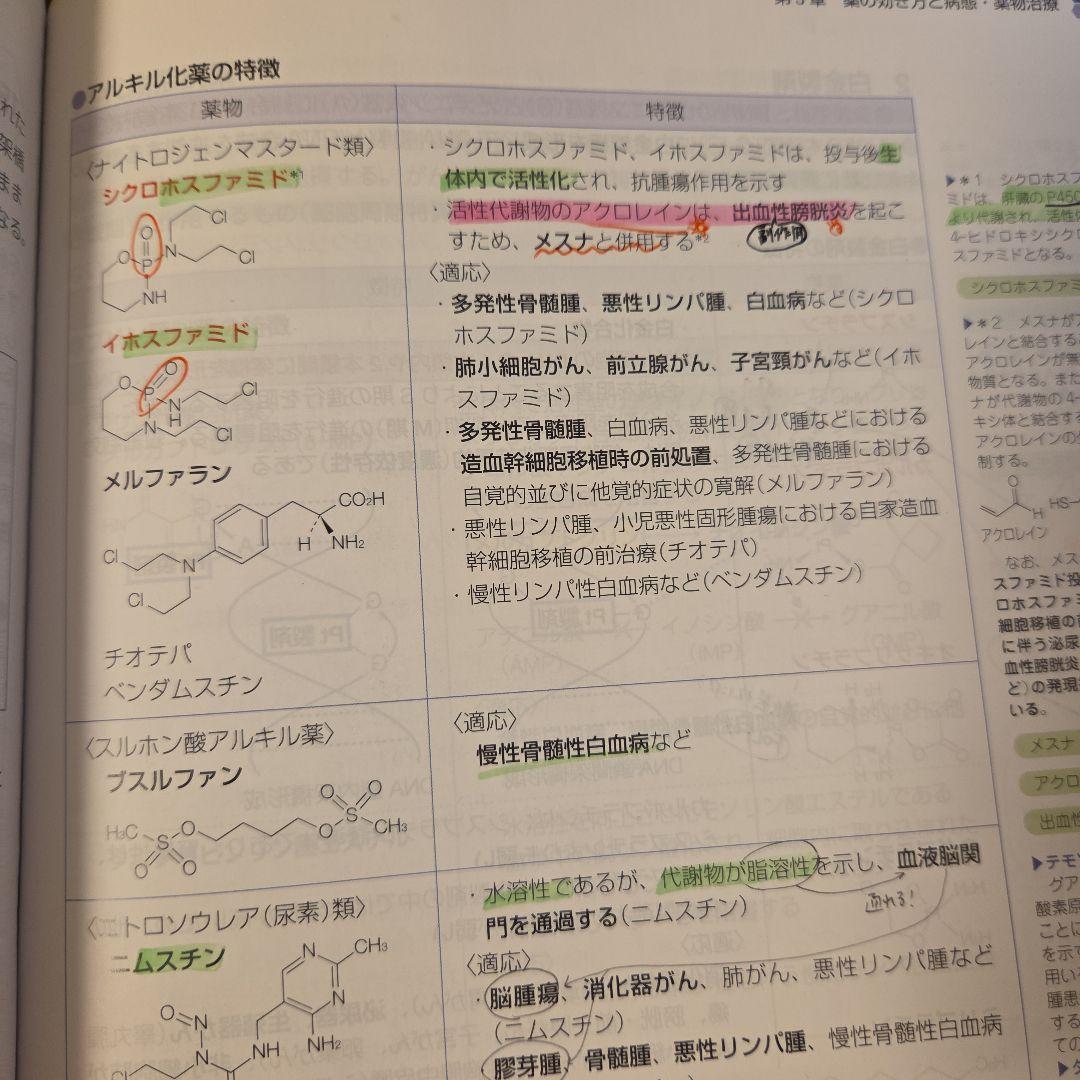 第3章 薬の効き方と病態・薬物治療
●アルキル化薬の特徴
薬物
特徴
〈ナイトロジェンマスタード類〉
シクロホスファミド*1
Cl
O
N
Cl
O
P
NH
イホスファミド
O
O
P
Cl
N
H
N
Cl
メルファラン
CO2H
H
NH2
Cl
N
Cl
チオテパ
ベンダムスチン
・シクロホスファミド、イホスファミドは、投与後生
体内で活性化され、抗腫瘍作用を示す
・活性代謝物のアクロレインは、出血性膀胱炎を起こ
すため、メスナと併用する*2
副作用
〈適応〉
・多発性骨髄腫、悪性リンパ腫、白血病など(シクロ
ホスファミド)
・肺小細胞がん、前立腺がん、子宮頸がんなど(イホ
スファミド)
・多発性骨髄腫、白血病、悪性リンパ腫などにおける
造血幹細胞移植時の前処置、多発性骨髄腫における
自覚的並びに他覚的症状の寛解(メルファラン)
・悪性リンパ腫、小児悪性固形腫瘍における自家造血
幹細胞移植の前治療(チオテパ)
・慢性リンパ性白血病など(ベンダムスチン)
〈スルホン酸アルキル薬〉
ブスルファン
H3C
S
O
O
O
O
S
O
O
CH3
〈適応〉
慢性骨髄性白血病など
〈ニトロソウレア(尿素)類〉
ニムスチン
N
CH3
N
O
N
NH2
NH
N
Cl
・水溶性であるが、代謝物が脂溶性を示し、血液脳関
門を通過する(ニムスチン)
通れる!
〈適応〉
・脳腫瘍、消化器がん、肺がん、悪性リンパ腫など
(ニムスチン)
・膠芽腫、骨髄腫、悪性リンパ腫、慢性骨髄性白血病
▶*1 シクロホスフ
ミドは、肝臓のP450
より代謝され、活性
4-ヒドロキシシクロ
スファミドとなる。
シクロホスファミ
▶*2 メスナがア
レインと結合する
アクロレインが無
物質となる。また
ナが代謝物の4-
キシ体と結合する
アクロレインの
制する。
O
H
HS
アクロレイン
なお、メス
スファミド投
ロホスファミ
細胞移植の前
に伴う泌尿
血性膀胱炎
ど)の発現
いる。
メスナ
アクロ
出血性
▶テモ
グア
酸素原
ことに
を示す
用い
腫患
する
ての
れた
架橋
まま
なる。